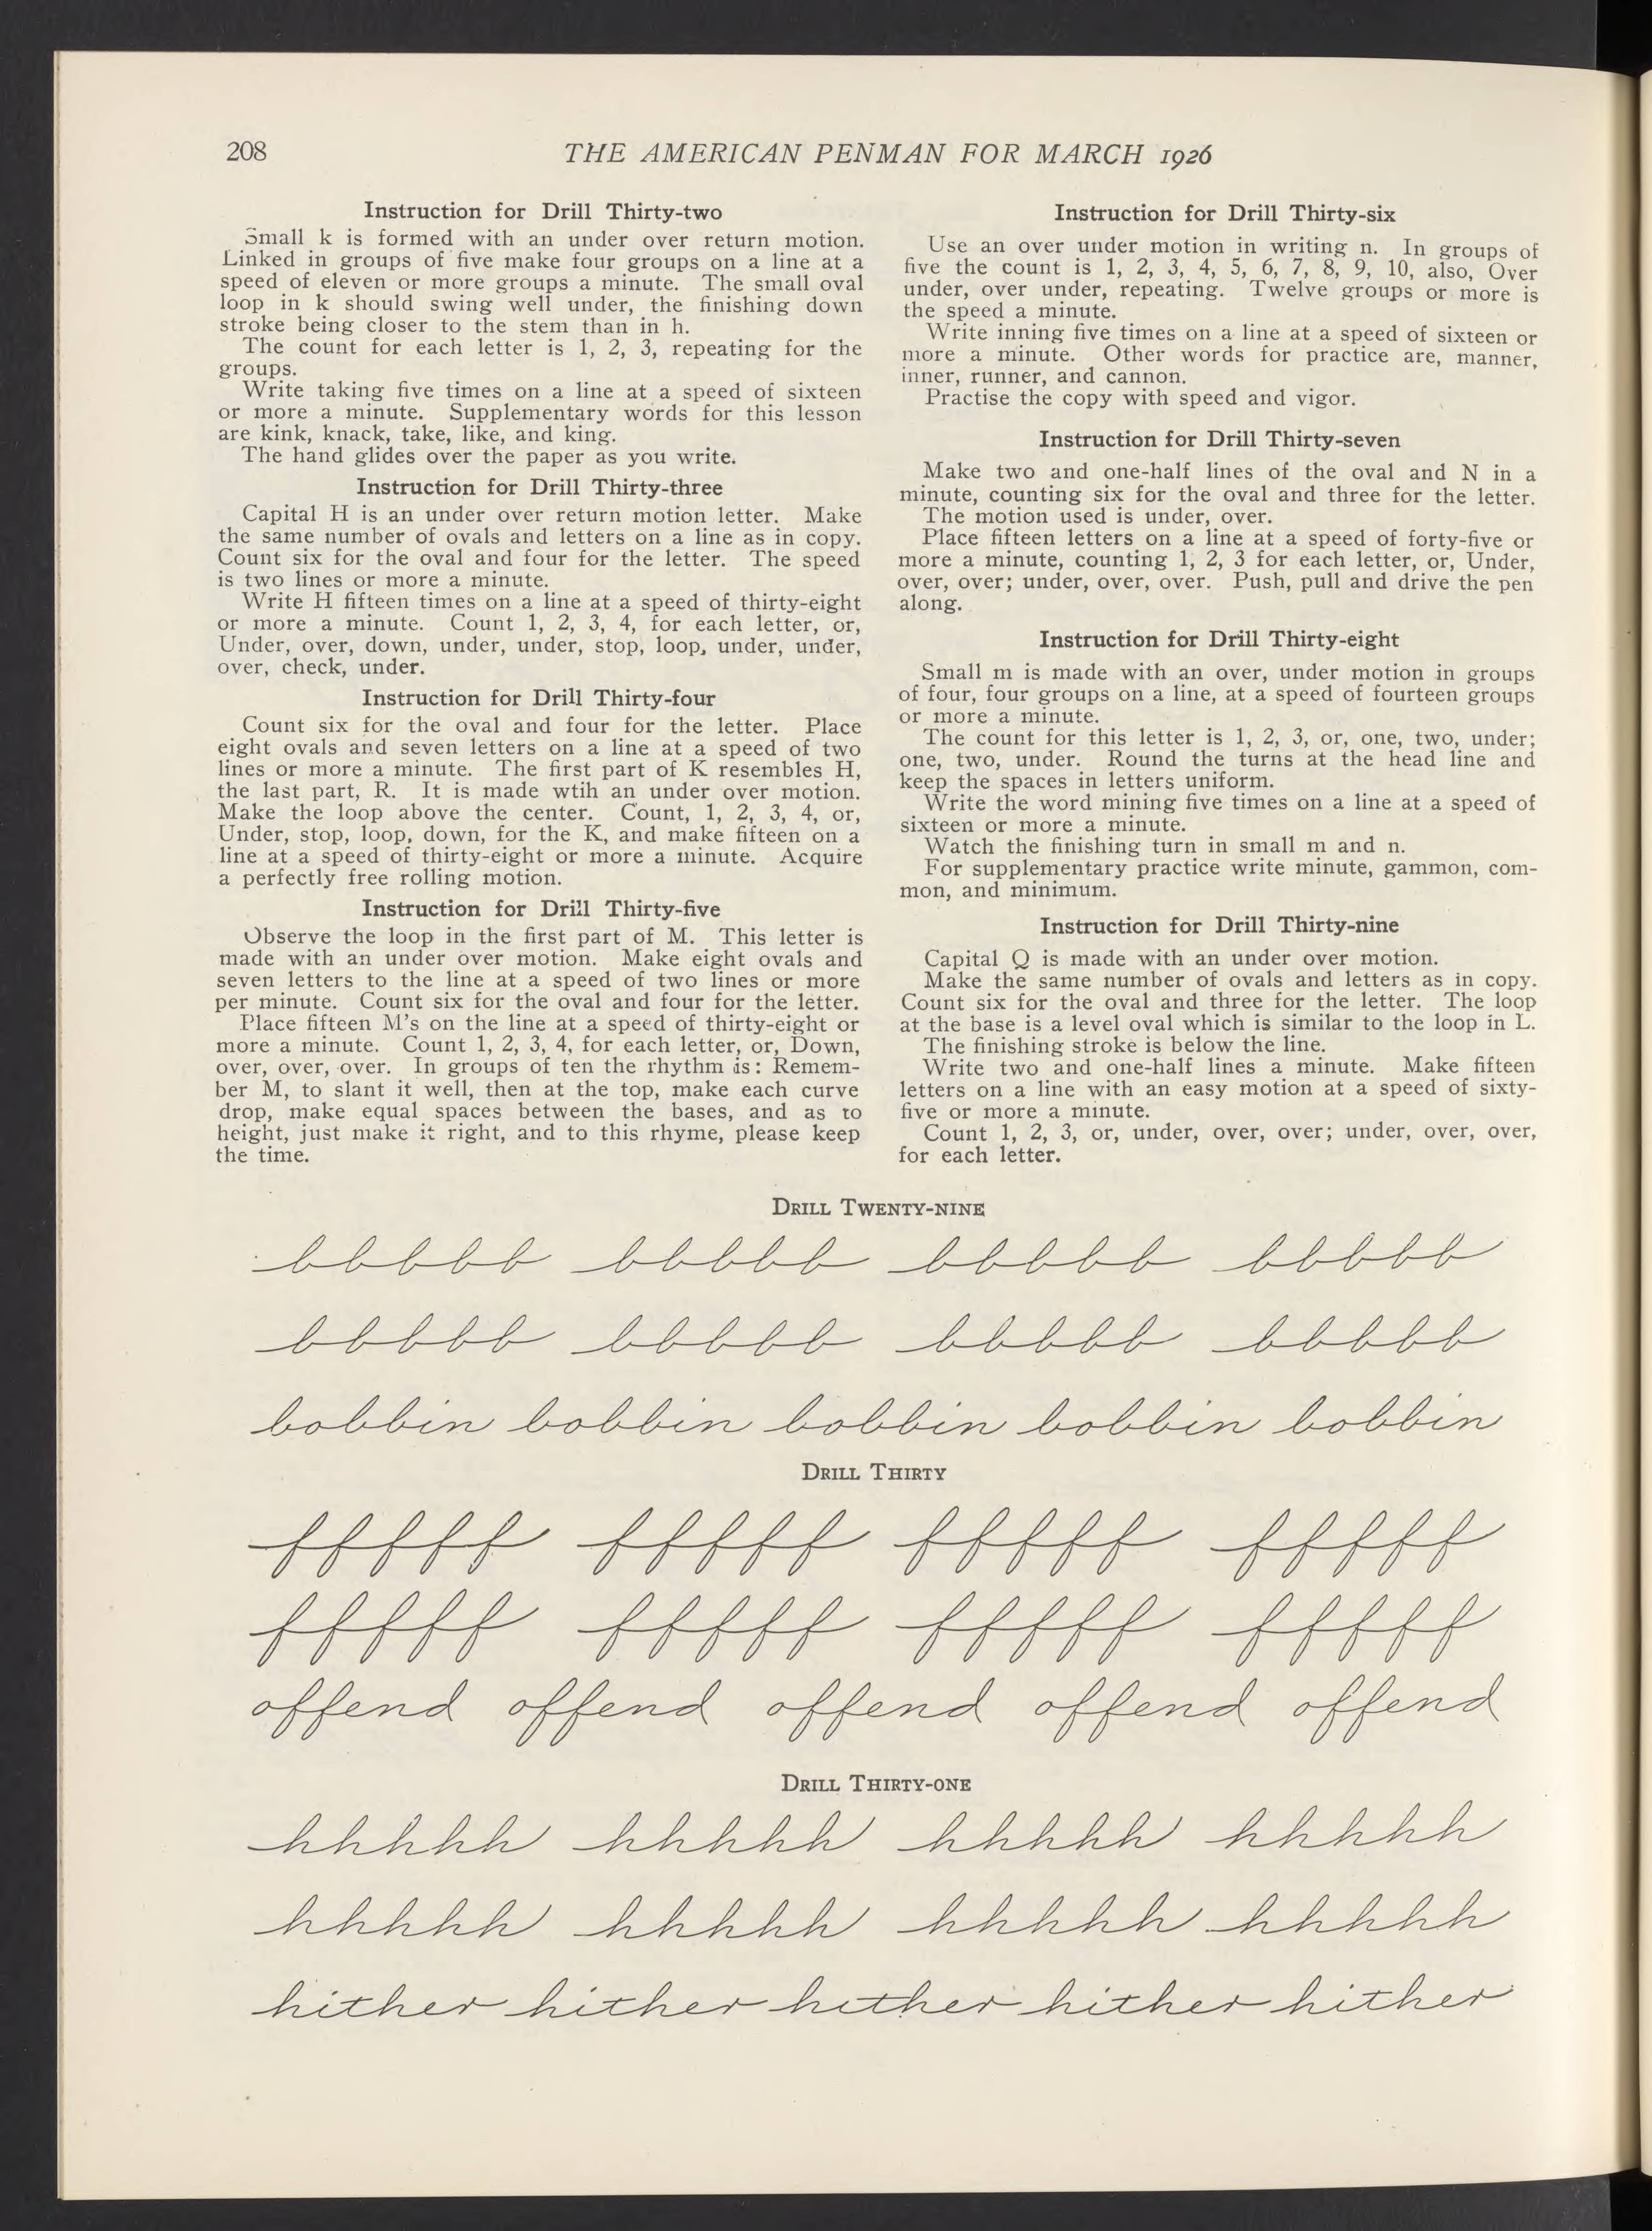 208
THE AMERICAN PENMAN FOR MARCH 1926
Instruction for Drill Thirty-two
Small k is formed with an under over return motion.
Linked in groups of five make four groups on a line at a
speed of eleven or more groups a minute. The small oval
loop in k should swing well under, the finishing down
stroke being closer to the stem than in h.
The count for each letter is 1, 2, 3, repeating for the
groups.
Write taking five times on a line at a speed of sixteen
or more a minute. Supplementary words for this lesson
are kink, knack, take, like, and king.
The hand glides over the paper as you write.
Instruction for Drill Thirty-three
Capital H is an under over return motion letter. Make
the same number of ovals and letters on a line as in copy.
Count six for the oval and four for the letter. The speed
is two lines or more a minute.
Write H fifteen times on a line at a speed of thirty-eight
or more a minute. Count 1, 2, 3, 4, for each letter, or,
Under, over, down, under, under, stop, loop, under, under,
over, check, under.
Instruction for Drill Thirty-four
Count six for the oval and four for the letter. Place
eight ovals and seven letters on a line at a speed of two
lines or more a minute. The first part of K resembles H,
the last part, R. It is made wtih an under over motion.
Make the loop above the center. Count, 1, 2, 3, 4, or,
Under, stop, loop, down, for the K, and make fifteen on a
line at a speed of thirty-eight or more a minute. Acquire
a perfectly free rolling motion.
Instruction for Drill Thirty-five
Observe the loop in the first part of M. This letter is
made with an under over motion. Make eight ovals and
seven letters to the line at a speed of two lines or more
per minute. Count six for the oval and four for the letter.
Place fifteen M's on the line at a speed of thirty-eight or
more a minute. Count 1, 2, 3, 4, for each letter, or, Down,
over, over, over. In groups of ten the rhythm is: Remem-
ber M, to slant it well, then at the top, make each curve
drop, make equal spaces between the bases, and as to
height, just make it right, and to this rhyme, please keep
the time.
Instruction for Drill Thirty-six
Use an over under motion in writing n. In groups of
five the count is 1, 2, 3, 4, 5, 6, 7, 8, 9, 10, also, Over
under, over under, repeating. Twelve groups or more is
the speed a minute.
Write inning five times on a line at a speed of sixteen or
more a minute. Other words for practice are, manner,
inner, runner, and cannon.
Practise the copy with speed and vigor.
Instruction for Drill Thirty-seven
Make two and one-half lines of the oval and N in a
minute, counting six for the oval and three for the letter.
The motion used is under, over.
Place fifteen letters on a line at a speed of forty-five or
more a minute, counting 1, 2, 3 for each letter, or, Under,
over, over; under, over, over. Push, pull and drive the pen
along.
Instruction for Drill Thirty-eight
Small m is made with an over, under motion in groups
of four, four groups on a line, at a speed of fourteen groups
or more a minute.
The count for this letter is 1, 2, 3, or, one, two, under;
one, two, under. Round the turns at the head line and
keep the spaces in letters uniform.
Write the word mining five times on a line at a speed of
sixteen or more a minute.
Watch the finishing turn in small m and n.
For supplementary practice write minute, gammon, com-
mon, and minimum.
Instruction for Drill Thirty-nine
Capital Q is made with an under over motion.
Make the same number of ovals and letters as in copy.
Count six for the oval and three for the letter. The loop
at the base is a level oval which is similar to the loop in L.
The finishing stroke is below the line.
Write two and one-half lines a minute. Make fifteen
letters on a line with an easy motion at a speed of sixty-
five or more a minute.
Count 1, 2, 3, or, under, over, over; under, over, over,
for each letter.
DRILL TWENTY-NINE
bbbbb bbbbb bbbbb bbbbb
bbbbb bbbbb bbbbb bbbbb
bobbin bobbin bobbin bobbin bobbin
DRILL THIRTY
fffff fffff fffff fffff
fffff fffff fffff fffff
offend offend offend offend offend
DRILL THIRTY-ONE
hhhhh hhhhh hhhhh hhhhh
hhhhh hhhhh hhhhh hhhhh
hither hither hither hither hither